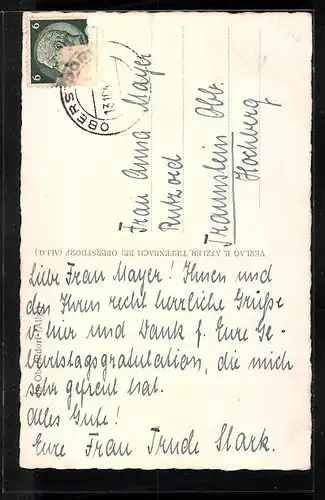 6 6
OBERS
13.10.4
Frau Anna Mayer
Traunstein Obb.
Hochberg
VERLAG H. ATZLER, TIEFENBACH BEI OBERSTDORF (ALLG.)
Liebe Frau Mayer! Ihnen und
den Ihren recht herzliche Grüße
v. hier und Dank f. Eure Ge-
burtstagsgratulation, die mich
sehr gefreut hat.
Alles Gute!
Eure Frau Trude Stark.